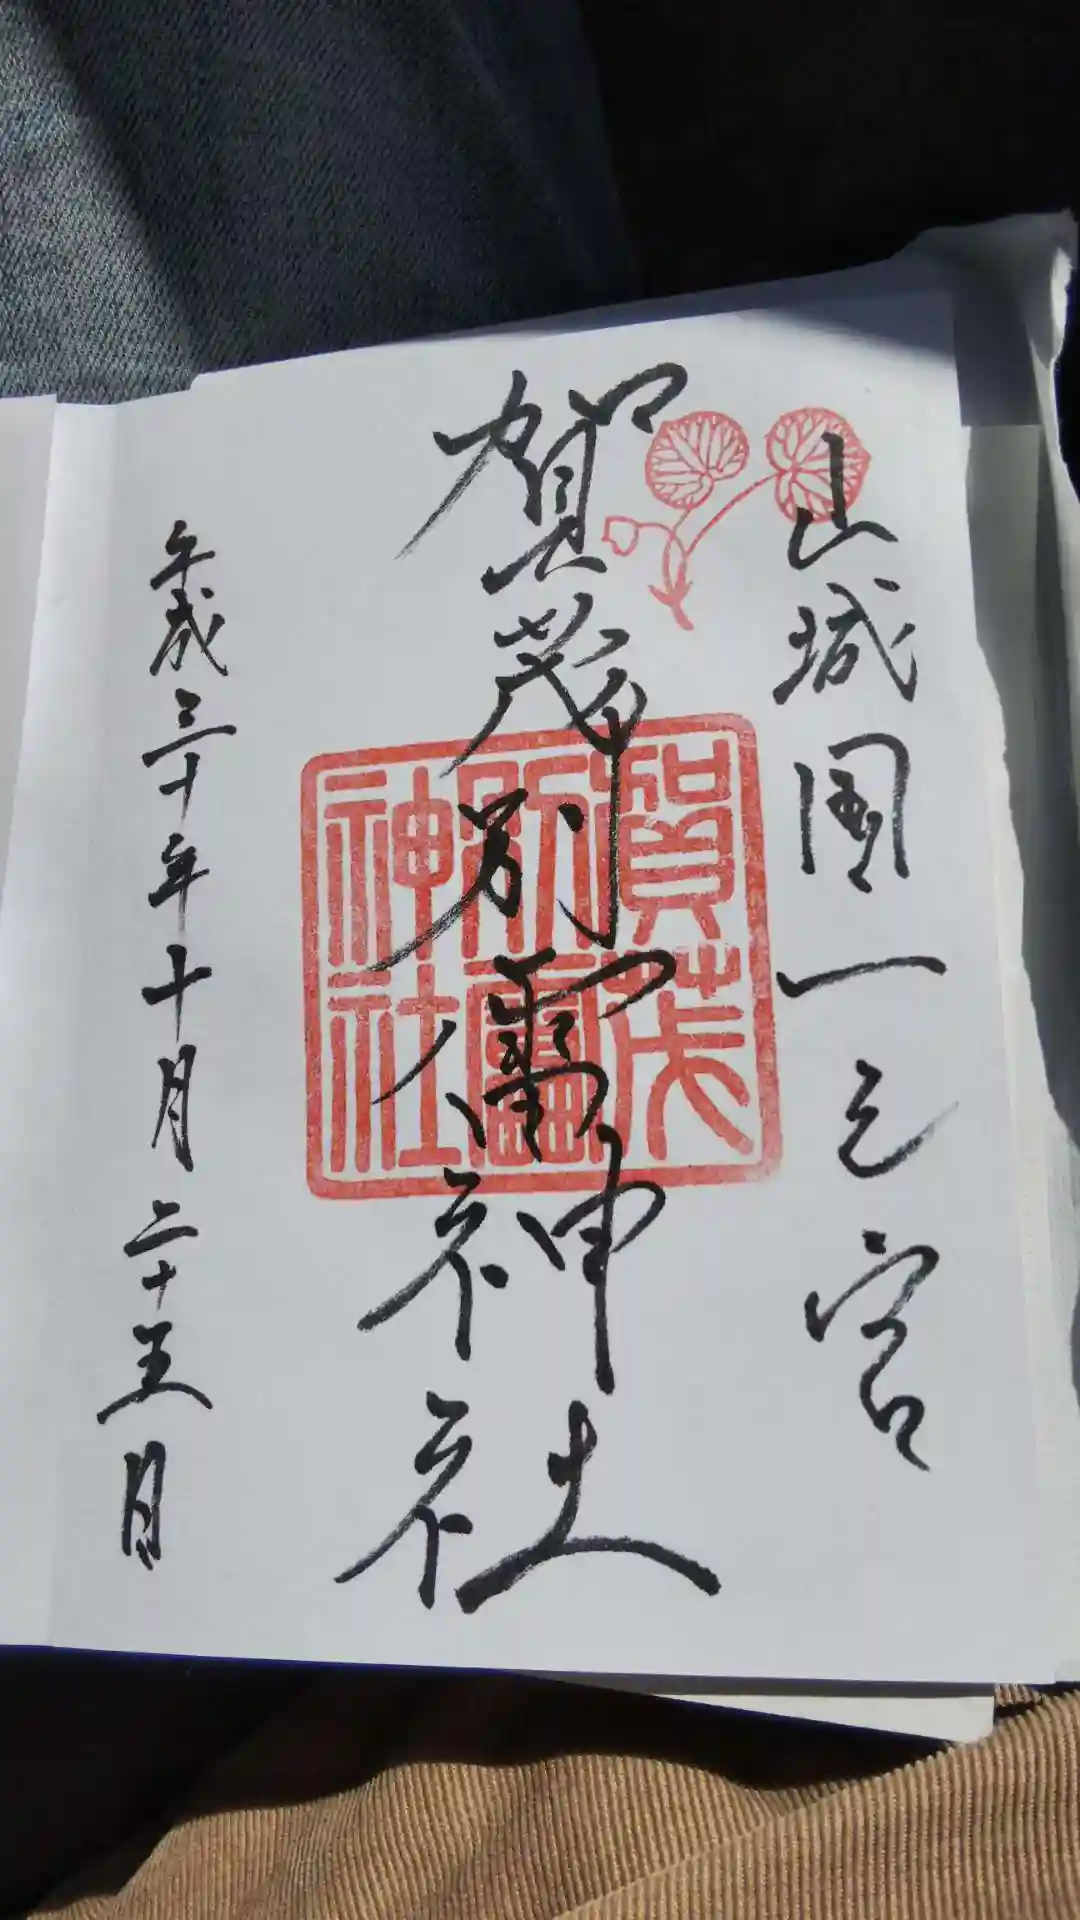 山城國一之宮
賀茂別雷神社
賀茂
別雷
神社
平成三十年十月二十五日